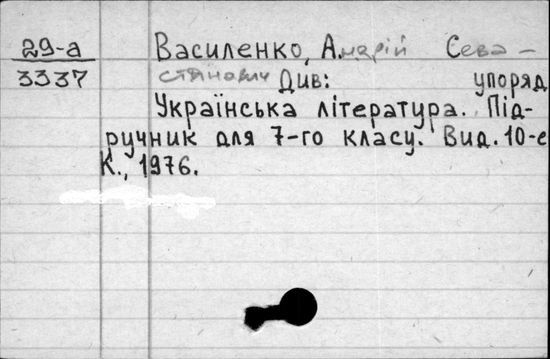 29-а Василенко, А.ндрій Сева-
3337 стянович Див: упоряд
Українська література. Під-
ручник для 7-го класу. Вид. 10-е
К., 1976.